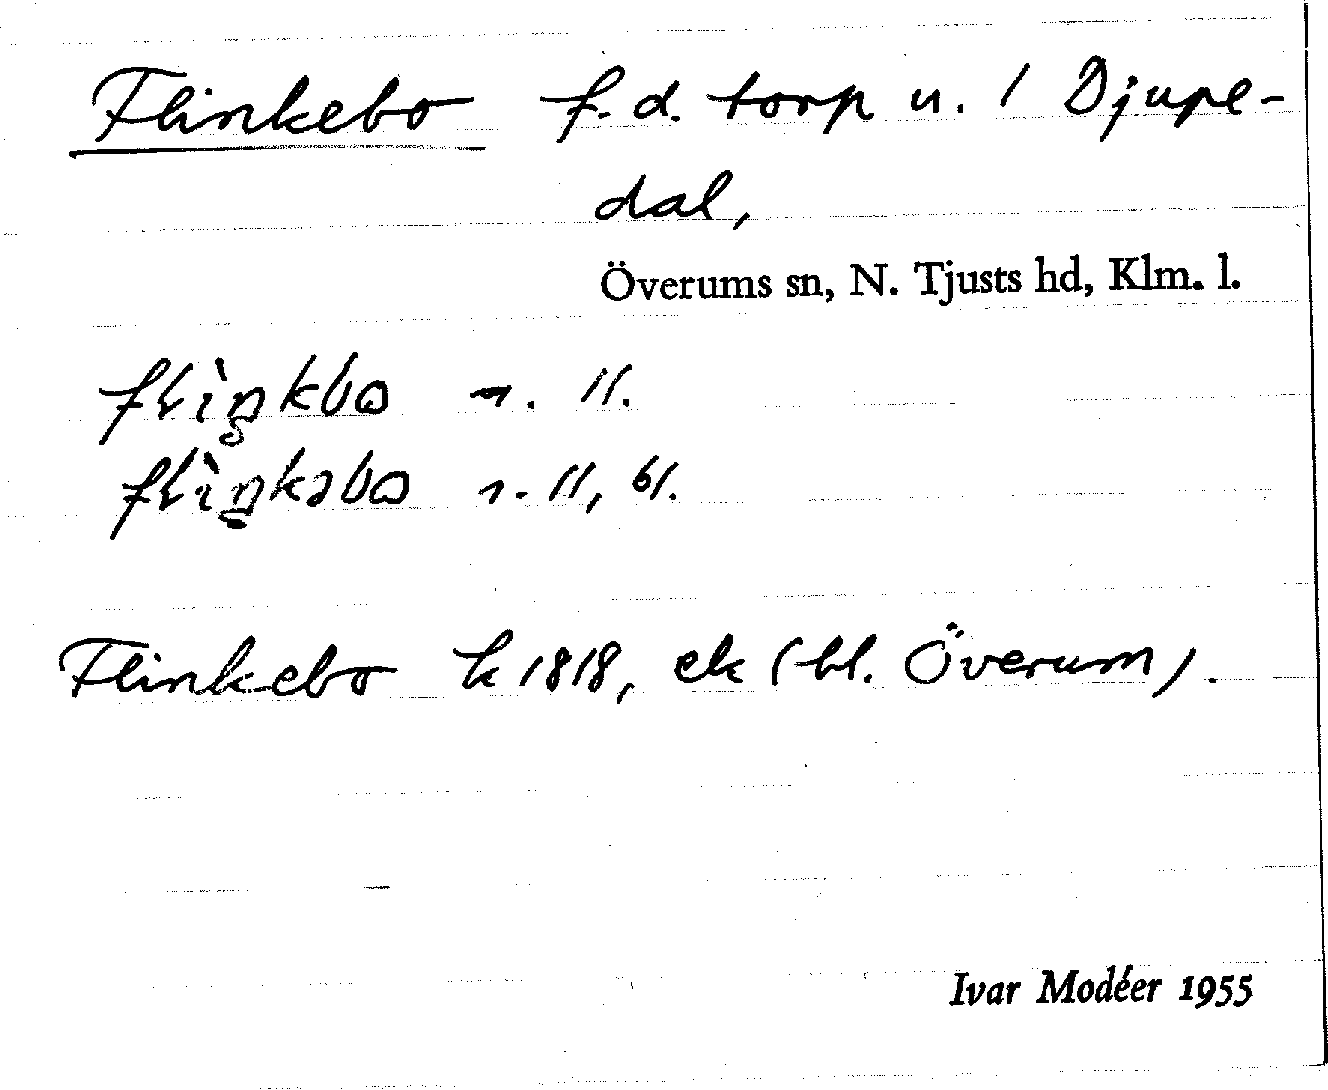 Flinkebo f.d. torp u. 1 Djupe-
dal,
Överums sn, N. Tjusts hd, Klm. l.
flìŋkbo 11.
flìŋkəbo 11, 61.
Flinkebo k 1818, ek (bl. Överum).
Ivar Modéer 1955